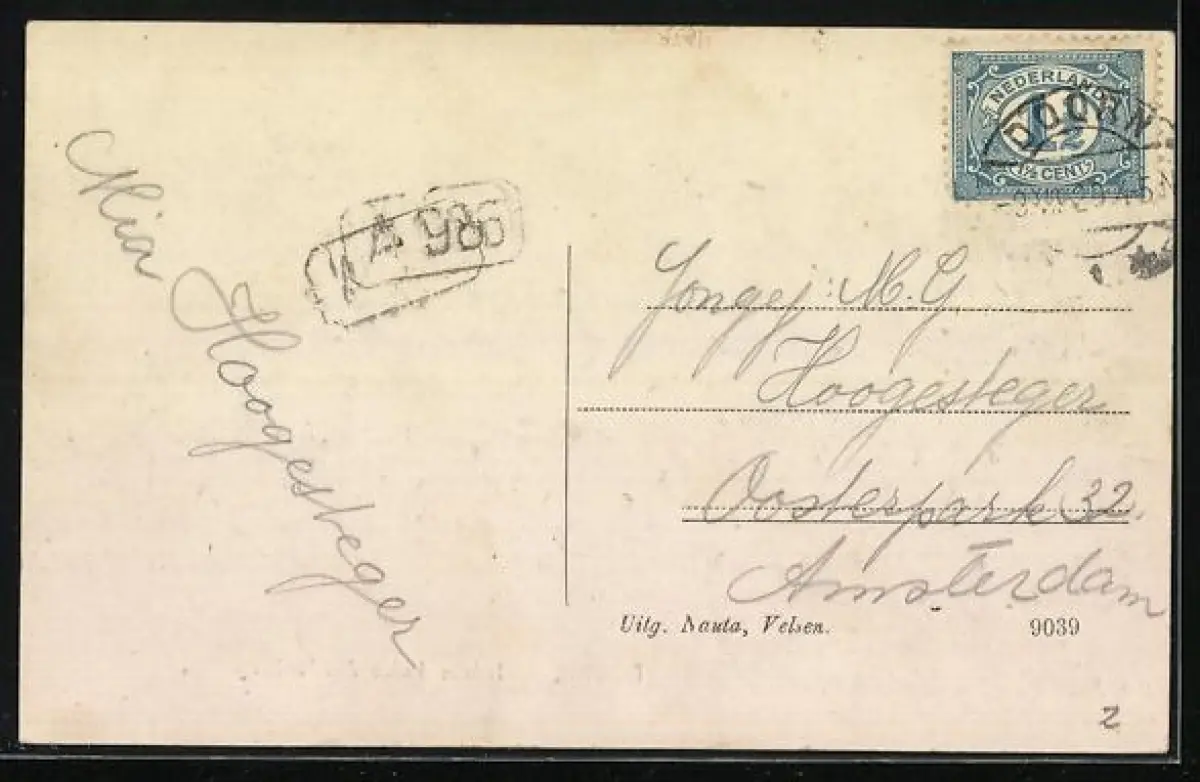 NEDERLAND
1½
1½ CENT
DOORN
A 986
Mia Hoogesteger
Jongej: M. G
Hoogesteger
Oosterpark 32.
Amsterdam
Uitg. Nauta, Velsen.
9039
2